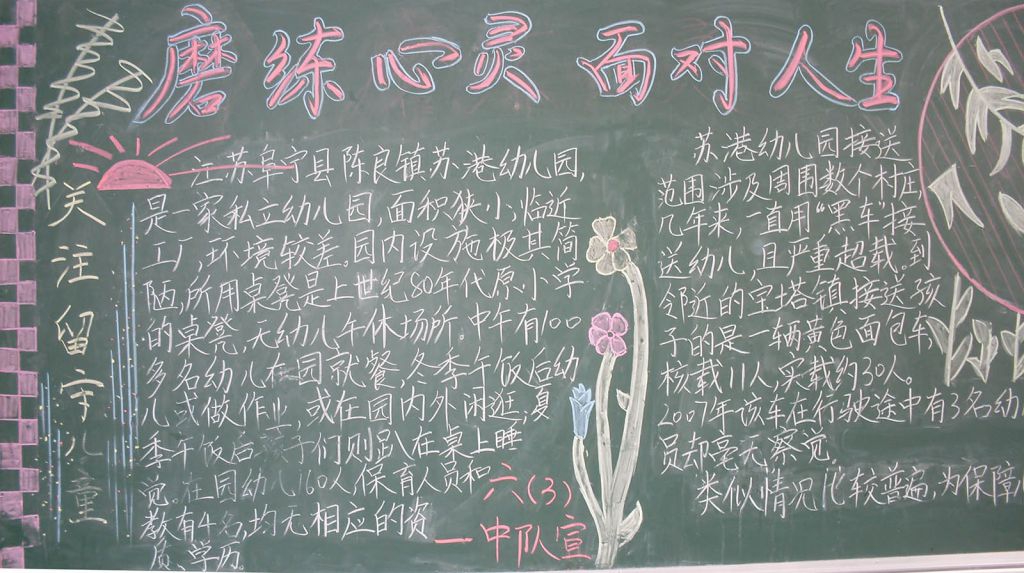 磨练心灵 面对人生
关注留守儿童
江苏阜宁县陈良镇苏港幼儿园,
是一家私立幼儿园,面积狭小,临近
工厂,环境较差。园内设施极其简
陋,所用桌凳是上世纪80年代原小学
的桌凳,无幼儿午休场所。中午有100
多名幼儿在园就餐,冬季午饭后幼
儿或做作业,或在园内外闲逛,夏
季午饭后孩子们则趴在桌上睡
觉。在园幼儿160人,保育人员和
教有4名,均无相应的资
质、学历
六(3)
一中队宣
苏港幼儿园接送
范围涉及周围数个村庄
几年来,一直用“黑车”接
送幼儿,且严重超载。到
邻近的宝塔镇接送孩
子的是一辆黄色面包车
核载11人,实载约30人。
2007年该车在行驶途中有3名幼儿
员却毫无察觉.
类似情况比较普遍,为保障